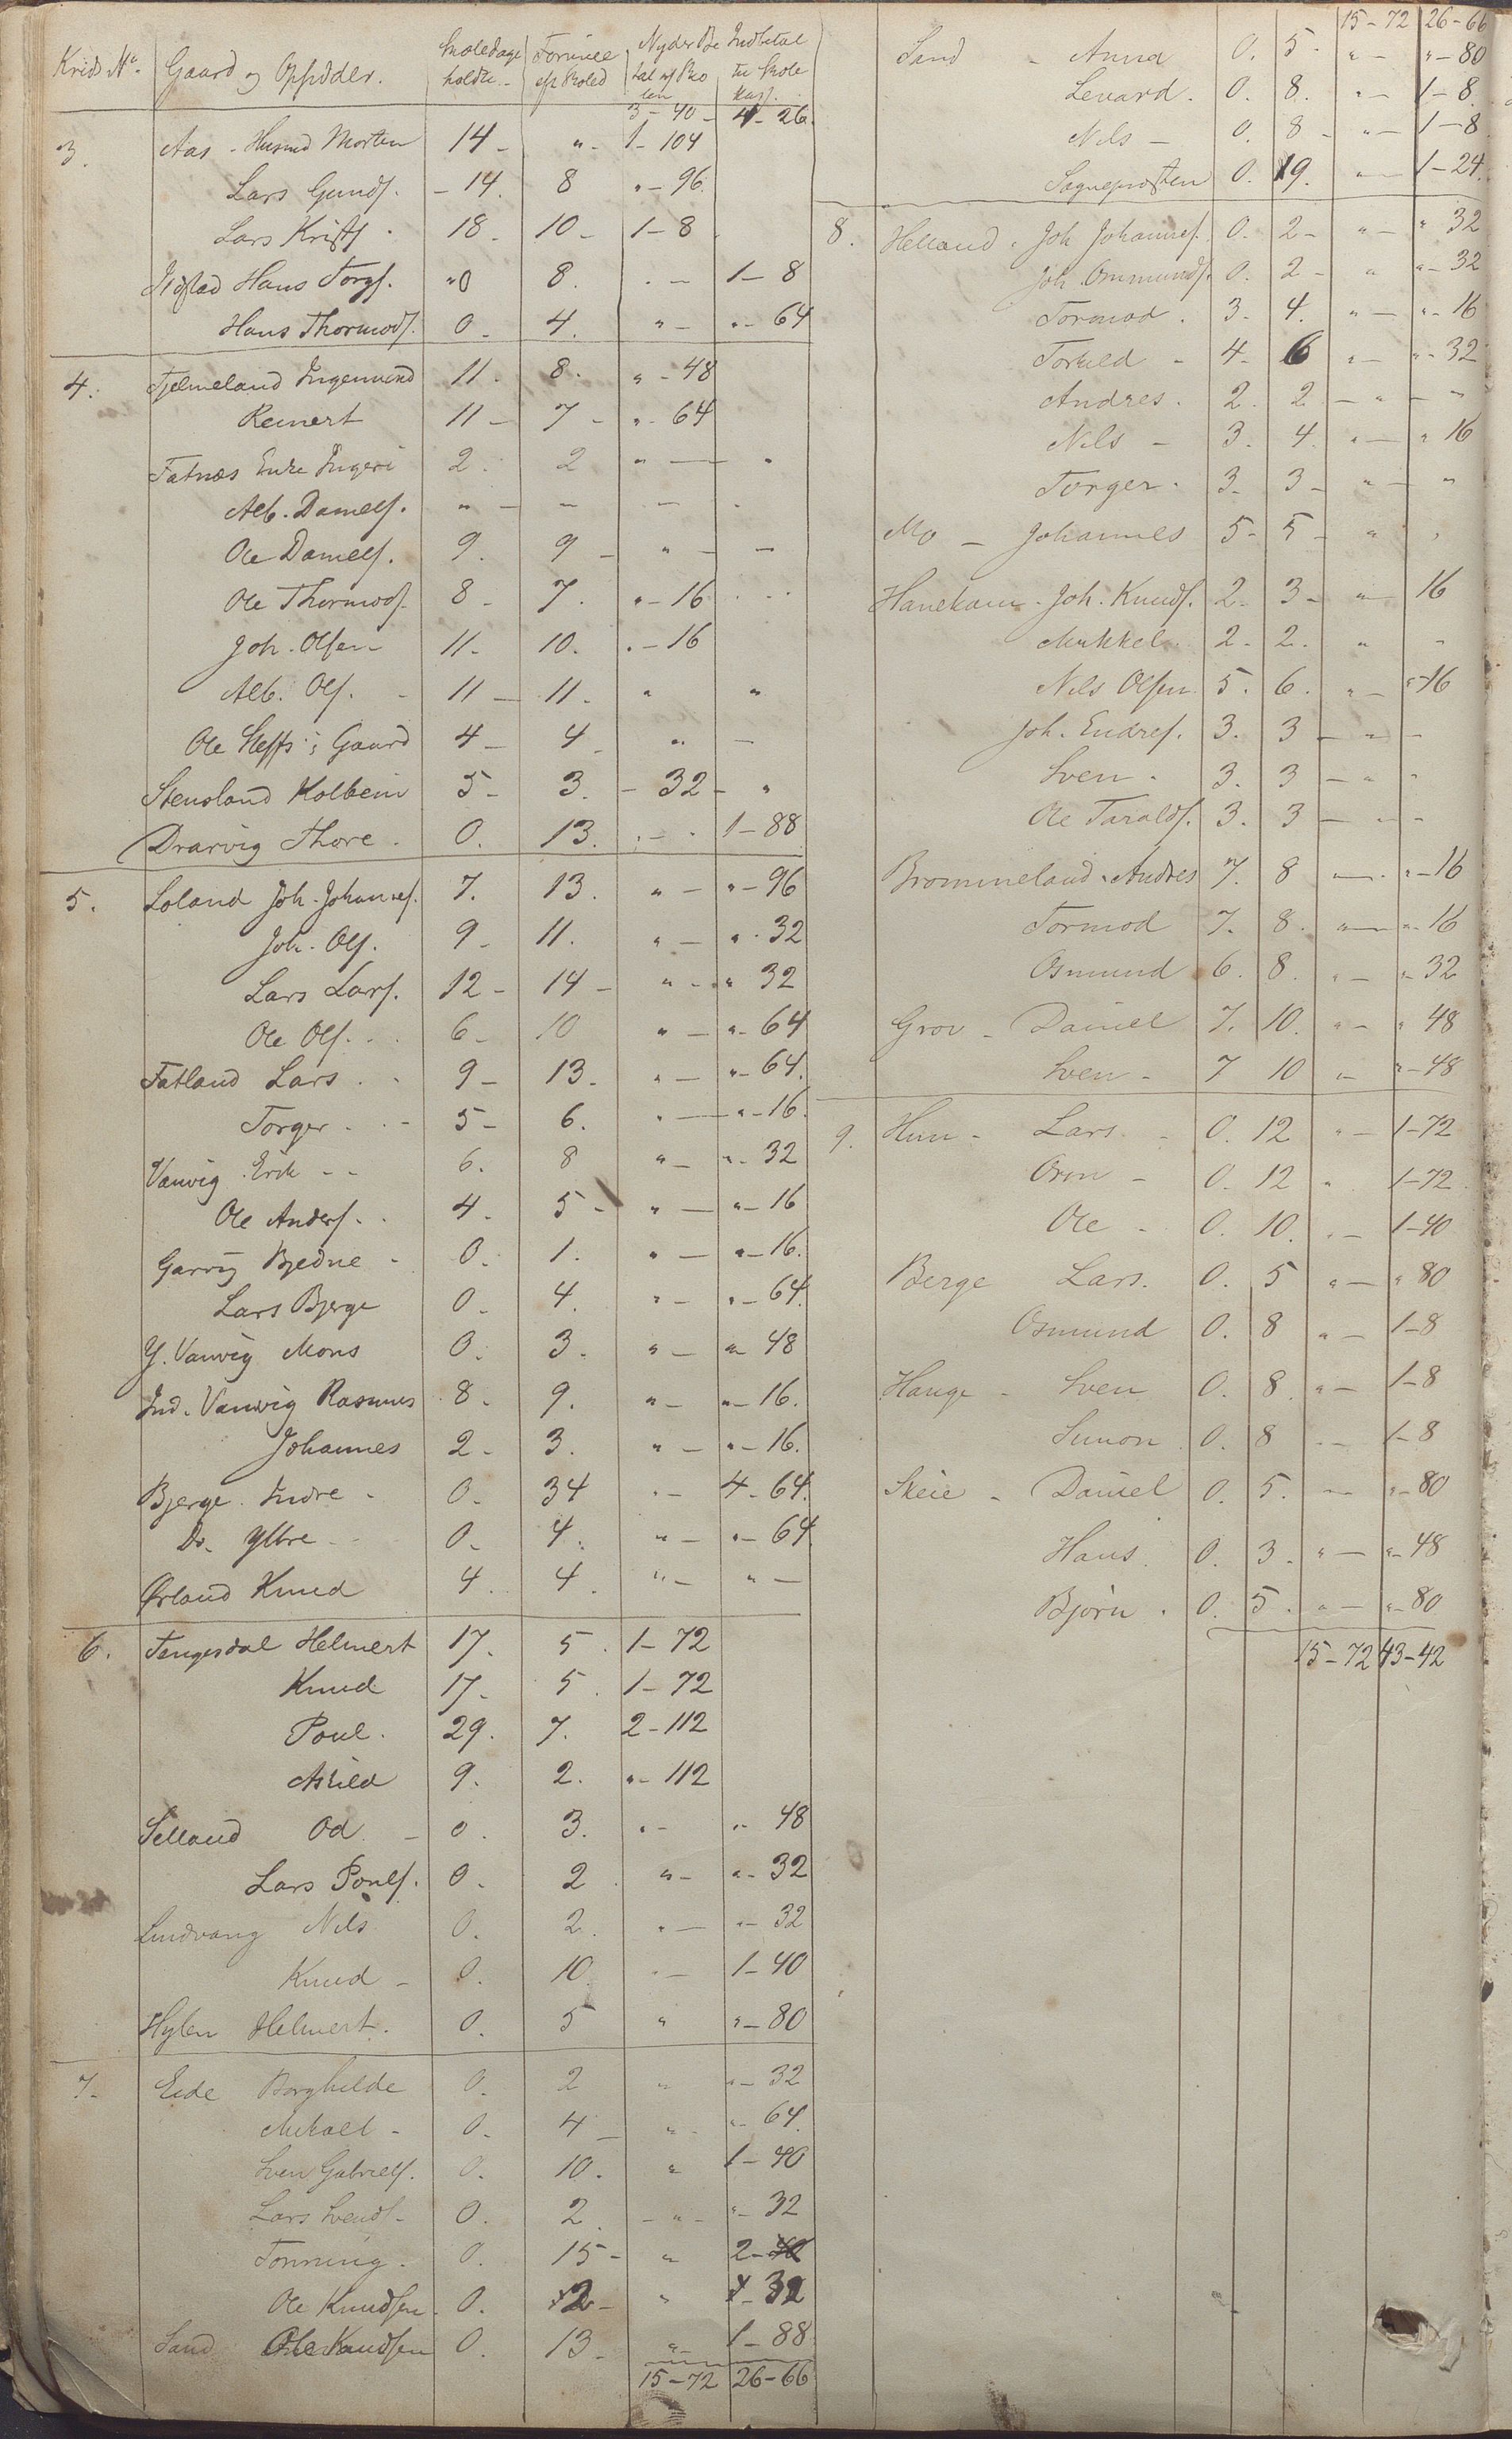 Kreds No. Gaard og Opsidder. Skoledage holdte Formue ef. Skoled Nyder Be tal af Sko len Indbetal til Skole kass.
3-40 - 4-26.
3. Aas - Husmd Morten 14 - " - 1-104
Lars Gunds. - 14. 8 " - 96.
Lars Krists. 18 - 10 - 1-8
Hans Torgs. "0 8. . - 1-8
Hans Thormods. 0 - 4. " - " - 64
4. Fjelmeland Ingemund 11 - 8. " - 48
Reinert 11 - 7 - " - 64
Fatnæs Enke Ingeri 2. 2 " - "
Alb. Daniels. " - - - .
Ole Daniels. 9. 9 - " - -
Ole Thormods. 8 - 7. " - 16 . . .
Joh. Olsen 11 - 10. . - 16
Alb. Ols. - 11 - 11. " "
Ole Steffs. Gaard 4 - 4 - " -
Stensland Kolbein 5 - 3. - 32 - "
Drarvig Thore. 0. 13. . - . 1-88
5. Loland Joh. Johanes. 7. 13. " - " - 96
Joh. Ols. 9 - 11. " - " . 32
Lars Lars. 12 - 14 - " - . " 32
Ole Ols. . . 6 - 10 " - " - 64
Fatland Lars . - 9 - 13 - " - " - 64.
Torger . . - 5 - 6. " - " - 16.
Vanvig Erik - - 6. 8 " - " - 32
Ole Anders. . 4 - 5 - " - " - 16
Garvig Bjedne - 0. 1. " - " - 16.
Lars Bjerge 0 - 4. " - " - 64.
Y. Vanvig Mons 0. 3. " - " 48
Ind. Vanvig Rasmus 8 - 9. " - " - 16.
Johannes 2 - 3. " - " - 16.
Bjerge. Indre - 0. 34 " - 4 - 64.
Do. Yttre - - 0 - 4. " - " - 64
Ørland Knud 4. 4. " - " -
6. Tengesdal Helmert 17. 5. 1-72
Knud 17 - 5. 1-72
Poul. 29. 7. 2-112
Askild 9. 2. " - 112
Selland Od - 0. 3. " - " - 48
Lars Pouls. 0. 2 " - " - 32
Lindvang Nils 0. 2. " - " - 32
Knud - 0. 10 " - 1-40
Hylen Helmert. 0. 5 " " - 80
7. Eide Borghilde 0. 2 " " - 32
Mikael - 0. 4 - " - " - 64.
Sven Gabriels. 0. 10. " 1-40
Lars Svends. - 0. 2 - " - " - 32
Tonning. 0. 15 - " 2-
Ole Knudsen. 0. 2 - " 32
Sand Ole Knudsen 0. 13 - " - 1-88
15-72 26-66
15-72 26-66
Sand - Anna 0. 5 - " - " - 80
Levard. 0. 8. " - 1-8
Nils - 0. 8 - " - 1-8
Sogneprosten 0. 19. " - 1-24.
8. Helland. Joh. Johannes. 0. 2 - " - " 32
Joh. Ommunds. 0. 2 - " " - 32
Tormod. 3. 4. " - " - 16
Torkild - 4 - 6 " - " - 32
Andres. 2. 2 - " - "
Nils - 3. 4. " - " 16
Torger. 3 - 3 - " - "
Mo - Johannes 5 - 5 - " "
Hanekam - Joh. Knuds. 2 - 3 - " - 16
Mikkel. 2 - 2. " -
Nils Olsen 5. 6. " - " - 16
Joh. Endres. 3. 3 - " -
Sven - 3. 3 - " -
Ole Taralds. 3. 3 - " -
Brommeland - Andres 7. 8 - . " - 16
Tormod 7. 8. " - " - 16
Osmund 6. 8. " - " 32
Grov - Daniel 7. 10. " - " 48
Sven - 7 10 " - " - 48
9. Hun - Lars. - 0. 12 " - 1-72
Orm - 0. 12 " . 1-72
Ole - 0. 10. . - 1-40
Berge Lars. 0. 5 " - " 80
Osmund 0. 8 " - 1-8
Hauge - Sven 0. 8. " - 1-8
Simon. 0. 8 . - 1-8
Skeie - Daniel 0. 5. " - " - 80
Hans. 0. 3. " - " - 48
Bjørn. 0. 5. " - " - 80
15-72 43-42